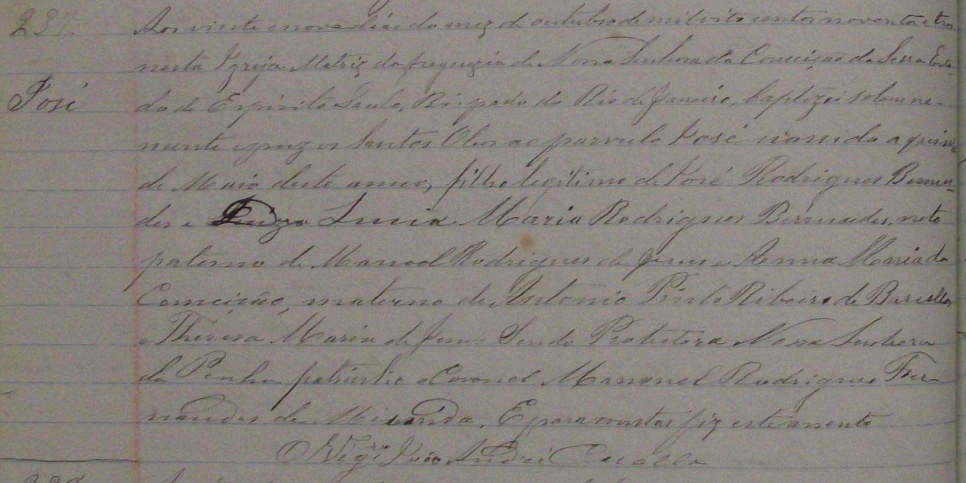 237. Aos vinte e nove dias do mez de outubro de mil oito centos noventa e tres
nesta Igreja Matriz da freguezia de Nossa Senhora da Conceição da Serra Esta-
José do de Espirito Santo, Bispado do Rio de Janeiro, baptizei solemne-
mente e puz os Santos Oleos ao parvulo José nascido a quinze
de Maio deste anno, filho legitimo de José Rodrigues Bermu-
des e Luzia Maria Rodrigues Bermudes, neto
paterno de Manoel Rodrigues de Jesus e Anna Maria da
Conceição, materno de Antonio Pinto Ribeiro de Barcellos
e Theresa Maria de Jesus. Sendo Protectora Nossa Senhora
da Penha, padrinho o Coronel Manoel Rodrigues Fer-
nandes de Miranda. E para constar fiz este assento
O Vigr.º João André